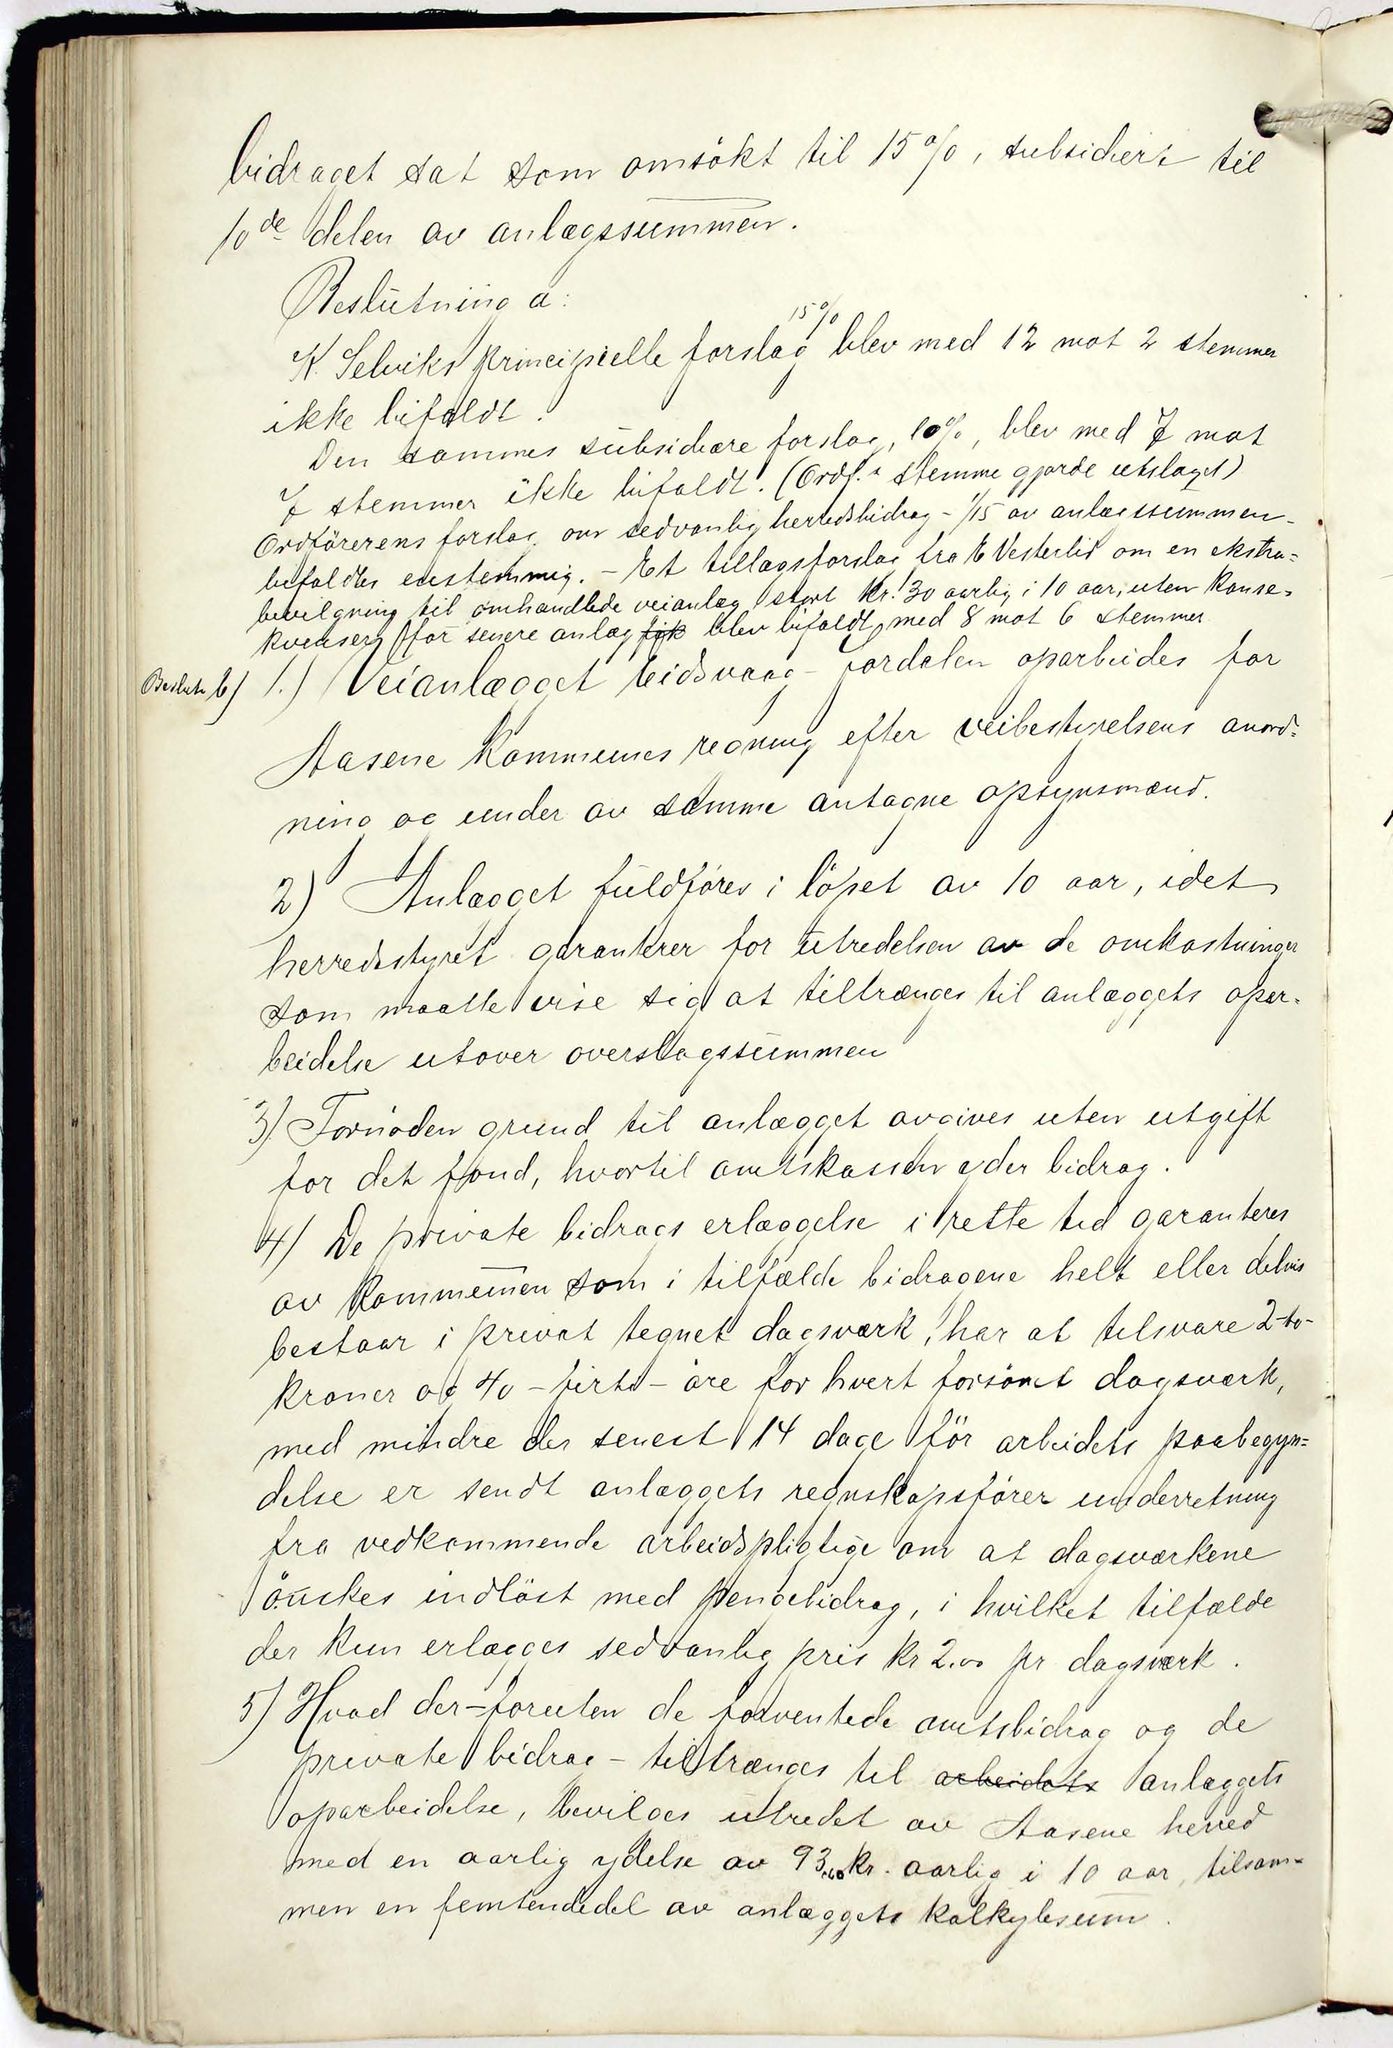 bidraget sat som omsökt til 15%, subsidiert til
10de delen av anlægssummen.
Beslutning a:
K. Selviks principielle forslag 15% blev med 12 mot 2 stemmer
ikke bifaldt.
Den sammes subsidiære forslag, 10%, blev med 7 mot
7 stemmer ikke bifaldt. (Ordf.s stemme gjorde utslaget)
Ordförerens forslag om sedvanlig herredsbidrag - 1/15 av anlægssummen -
bifaldtes enstemmig. - Et tillægsforslag fra E Vesterlid om en ekstra=
bevilgning til omhandlede veianlæg stort kr. 30 aarlig i 10 aar, uten konse-
kvenser for senere anlæg fik blev bifaldt med 8 mot 6 stemmer
Beslutn b) 1.) Veianlægget Eidsvaag - Jordalen oparbeides for
Aasene kommunes regning efter veibestyrelsens anord-
ning og under av samme antagne opsynsmænd.
2) Anlægget fuldföres i löpet av 10 aar, idet
herredsstyret garanterer for utredelsen av de omkostninger
som maatte vise sig at tiltrænges til anlæggets opar-
beidelse utover overslagssummen
3) Fornöden grund til anlægget avgives uten utgift
for det fond, hvortil amtskassen yder bidrag.
4) De private bidrags erlæggelse i rette tid garanteres
av kommunen som i tilfælde bidragene helt eller delvis
bestaar i privat tegnet dagsværk, har at tilsvare 2-to-
kroner og 40 - firti - öre for hvert forsömt dagsværk,
med mindre der senest 14 dage för arbeidets paabegyn=
delse er sendt anlæggets regnskapsförer underretning
fra vedkommende arbeidspligtige om at dagsværkene
önskes indlöst med pengebidrag, i hvilket tilfælde
der kun erlægges sedvanlig pris kr 2.00 pr dagsværk.
5) Hvad der - foruten de forventede amtsbidrag og de
private bidrag - tiltrænges til arbeidets anlæggets
oparbeidelse, bevilges utredet av Aasene herred
med en aarlig ydelse av 93.40 kr. aarlig i 10 aar, tilsam-
men en femtendedel av anlæggets kalkylesum.